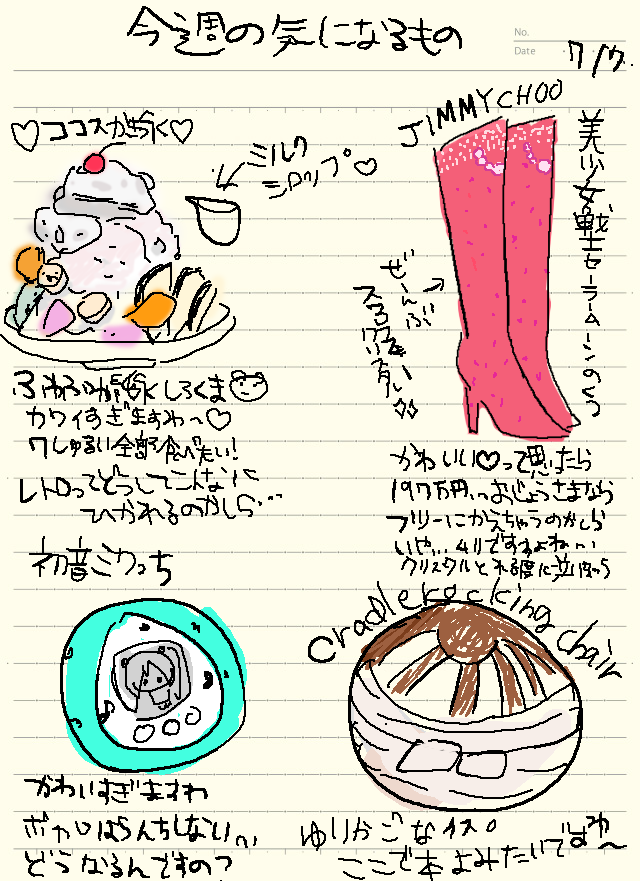 今週の気になるもの
No.
Date
7/7.
♡ココスがき氷♡
ミルク
シロップ♡
JIMMY CHOO
美少女戦士セーラームーンのくつ
ぜーんぶ
スワロフスキー
ふわふわ
しろくま
カワイすぎますわ〜♡
7しゅるい全部食べたい!
レトロってどうしてこんなに
ひかれるのかしら…
かわいい♡って思ったら
197万円、、おじょうさまなら
フリーにかえちゃうのかしら
いや…ムリですよねい、
クリスタルと
初音ミクっち
Cradle rocking chair
かわいすぎますわ
ボカロはらんちしない、、
どうなるんですの?
ゆりかごなイス。
ここで本よみたいですわ〜